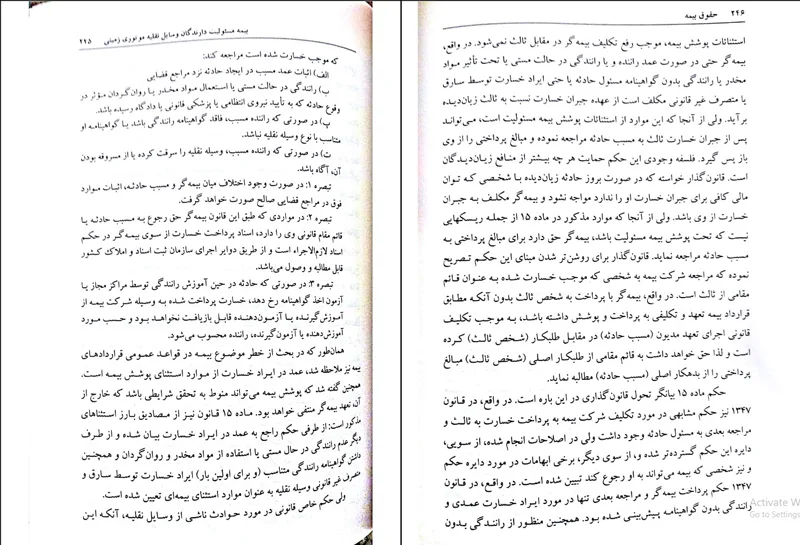 بیمه مسئولیت دارندگان وسایل نقلیه موتوری زمینی ۲۴۵
که موجب خسارت شده است مراجعه کند:
الف) اثبات عمد مسبب در ایجاد حادثه نزد مراجع قضایی
ب) رانندگی در حالت مستی یا استعمال مواد مخدر یا روان‌گردان مؤثر در
وقوع حادثه که به تأیید نیروی انتظامی یا پزشکی قانونی یا دادگاه رسیده باشد.
پ) در صورتی که راننده مسبب، فاقد گواهینامه رانندگی باشد یا گواهینامه او
متناسب با نوع وسیله نقلیه نباشد.
ت) در صورتی که راننده مسبب، وسیله نقلیه را سرقت کرده یا از مسروقه بودن
آن، آگاه باشد.
تبصره ۱: در صورت وجود اختلاف میان بیمه‌گر و مسبب حادثه، اثبات موارد
فوق در مراجع قضایی صالح صورت خواهد گرفت.
تبصره ۲: در مواردی که طبق این قانون بیمه‌گر حق رجوع به مسبب حادثه یا
قائم مقام قانونی وی را دارد، اسناد پرداخت خسارت از سوی بیمه‌گر در حکم
اسناد لازم‌الاجراء است و از طریق دوایر اجرای سازمان ثبت اسناد و املاک کشور
قابل مطالبه و وصول می‌باشد.
تبصره ۳: در صورتی که حادثه در حین آموزش رانندگی توسط مراکز مجاز یا
آزمون اخذ گواهینامه رخ دهد، خسارت پرداخت شده به وسیله شرکت بیمه از
آموزش‌گیرنده یا آزمون‌دهنده قابل بازیافت نخواهد بود و حسب مورد
آموزش‌دهنده یا آزمون‌گیرنده، راننده محسوب می‌شود.
همان‌طور که در بحث از خطر موضوع بیمه در قواعد عمومی قراردادهای
بیمه نیز ملاحظه شد، عمد در ایراد خسارت از موارد استثنای پوشش بیمه است.
همچنین گفته شد که پوشش بیمه می‌تواند منوط به تحقق شرایطی باشد که خارج از
آن، تعهد بیمه‌گر منتفی خواهد بود. ماده ۱۵ قانون نیز از مصادیق بارز استثناهای
مذکور است: از طرفی حکم راجع به عمد در ایراد خسارت بیان شده و از طرف
دیگر عدم رانندگی در حال مستی یا استفاده از مواد مخدر و روان‌گردان و همچنین
داشتن گواهینامه رانندگی متناسب (و برای اولین بار) ایراد خسارت توسط سارق و
متصرف غیر قانونی وسیله نقلیه به عنوان موارد استثنای بیمه‌ای تعیین شده است.
ولی حکم خاص قانونی در مورد حوادث ناشی از وسایل نقلیه، آنکه این
۲۴۶ حقوق بیمه
استثنائات پوشش بیمه، موجب رفع تکلیف بیمه‌گر در مقابل ثالث نمی‌شود. در واقع،
بیمه‌گر حتی در صورت عمد راننده و یا رانندگی در حالت مستی یا تحت تأثیر مواد
مخدر یا رانندگی بدون گواهینامه مسئول حادثه یا حتی ایراد خسارت توسط سارق
یا متصرف غیر قانونی مکلف است از عهده جبران خسارت نسبت به ثالث زیان‌دیده
برآید. ولی از آنجا که این موارد از استثنائات پوشش بیمه مسئولیت است، می‌تواند
پس از جبران خسارت ثالث به مسبب حادثه مراجعه نموده و مبالغ پرداختی را از وی
باز پس گیرد. فلسفه وجودی این حکم حمایت هر چه بیشتر از منافع زیان‌دیدگان
است. قانون‌گذار خواسته که در صورت بروز حادثه زیان‌دیده با شخصی که توان
مالی کافی برای جبران خسارت او را ندارد مواجه نشود و بیمه‌گر مکلف به جبران
خسارت از وی باشد. ولی از آنجا که موارد مذکور در ماده ۱۵ از جمله ریسکهایی
نیست که تحت پوشش بیمه مسئولیت باشد، بیمه‌گر حق دارد برای مبالغ پرداختی به
مسبب حادثه مراجعه نماید. قانون‌گذار برای روشن‌تر شدن مبنای این حکم تصریح
نموده که مراجعه شرکت بیمه به شخصی که موجب خسارت شده به عنوان قائم
مقامی از ثالث است. در واقع، بیمه‌گر با پرداخت به شخص ثالث بدون آنکه مطابق
قرارداد بیمه تعهد و تکلیفی به پرداخت و پوشش داشته باشد، به موجب تکلیف
قانونی اجرای تعهد مدیون (مسبب حادثه) در مقابل طلبکار (شخص ثالث) کرده
است و لذا حق خواهد داشت به قائم مقامی از طلبکار اصلی (شخص ثالث) مبالغ
پرداختی را از بدهکار اصلی (مسبب حادثه) مطالبه نماید.
حکم ماده ۱۵ بیانگر تحول قانون‌گذاری در این باره است. در واقع، در قانون
۱۳۴۷ نیز حکم مشابهی در مورد تکلیف شرکت بیمه به پرداخت خسارت به ثالث و
مراجعه بعدی به مسئول حادثه وجود داشت ولی در اصلاحات انجام شده، از سویی،
دایره این حکم گسترده‌تر شده و، از سوی دیگر، برخی ابهامات در مورد دایره حکم
و نیز شخصی که بیمه می‌تواند به او رجوع کند تبیین شده است. در واقع، در قانون
۱۳۴۷ حکم پرداخت بیمه‌گر و مراجعه بعدی تنها در مورد ایراد خسارت عمدی و
رانندگی بدون گواهینامه پیش‌بینی شده بود. همچنین منظور از رانندگی بدون
Activate W
Go to Settings